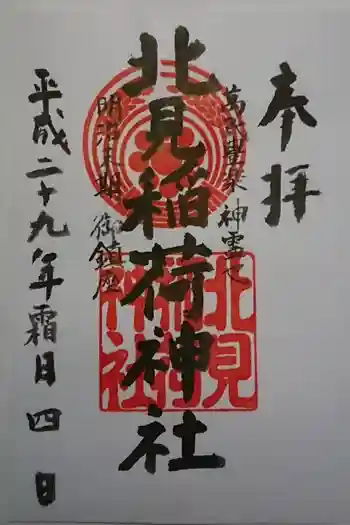 奉拝
萬民豊楽 神霊之
北見稲荷神社
明治天朝 御鎮座
平成二十九年霜月四日
北見
稲荷
神社